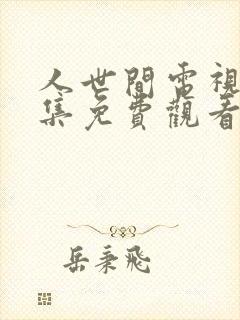 人世間電視
集免費觀看
岳秉飛